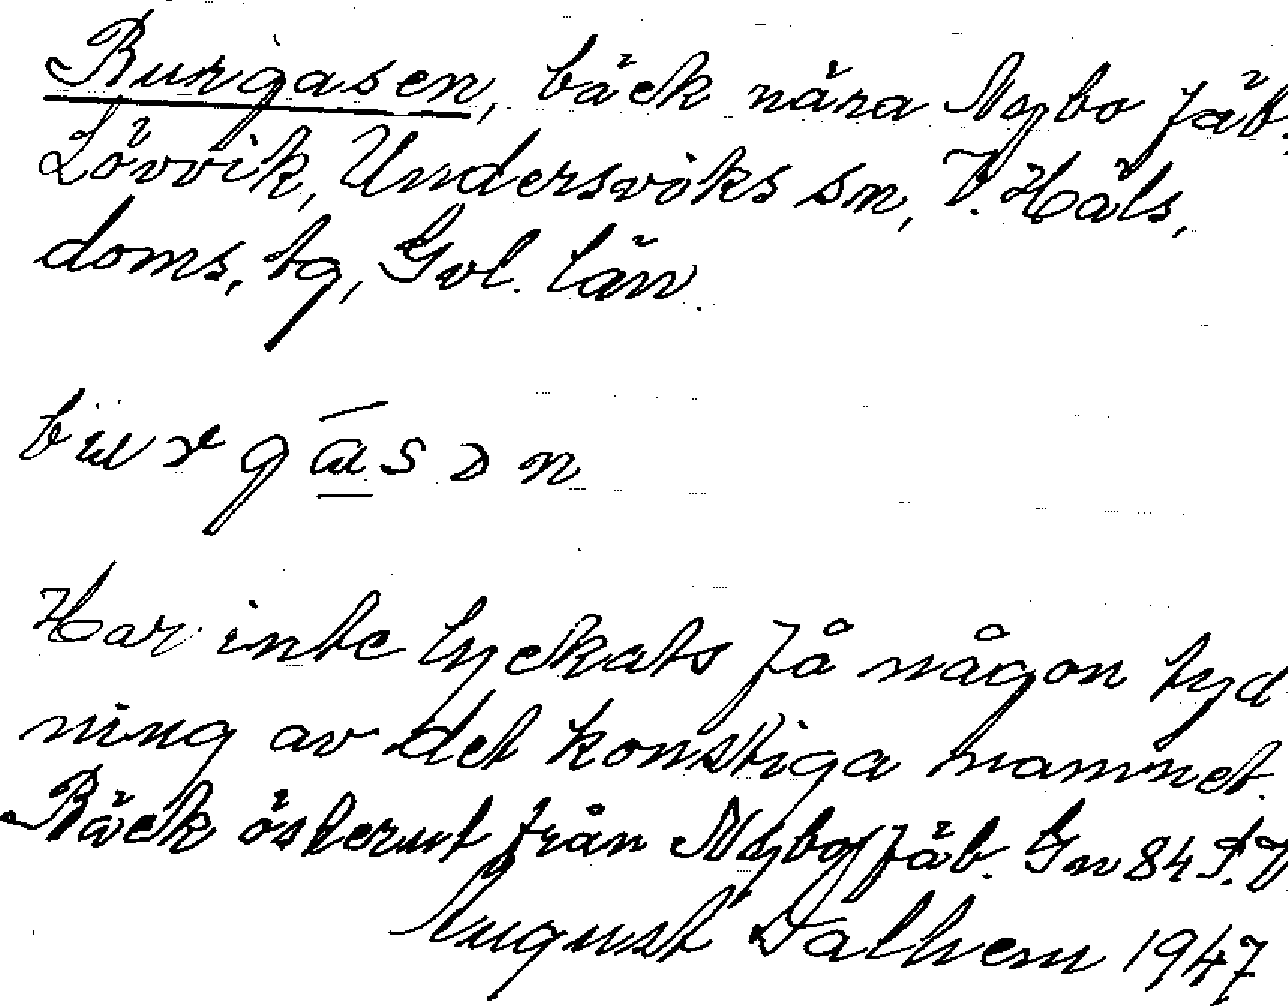 Burgåsen, bäck nära Nybo fäb.
Lövvik, Undersviks sn, V. Häls,
doms, tg, Gvl. län.
Har inte lyckats få någon tyd
ning av det konstiga namnet.
Bäck österut från Nybo fäb. Gn 84
August Dalhem 1947